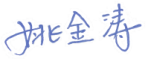 姚金涛